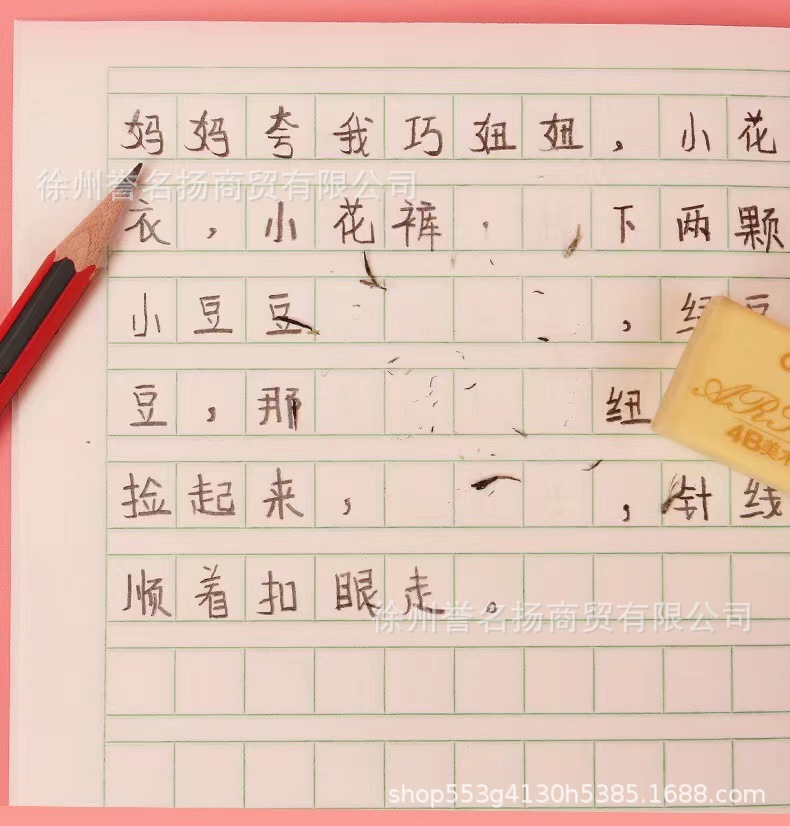 妈妈夸我巧妞妞，小花
徐州誉名扬商贸有限公司
衣，小花裤 下两颗
小豆豆 ，绿豆
豆，那 纽
4B美术
捡起来， ，针线
顺着扣眼走。
徐州誉名扬商贸有限公司
shop553g4130h5385.1688.com